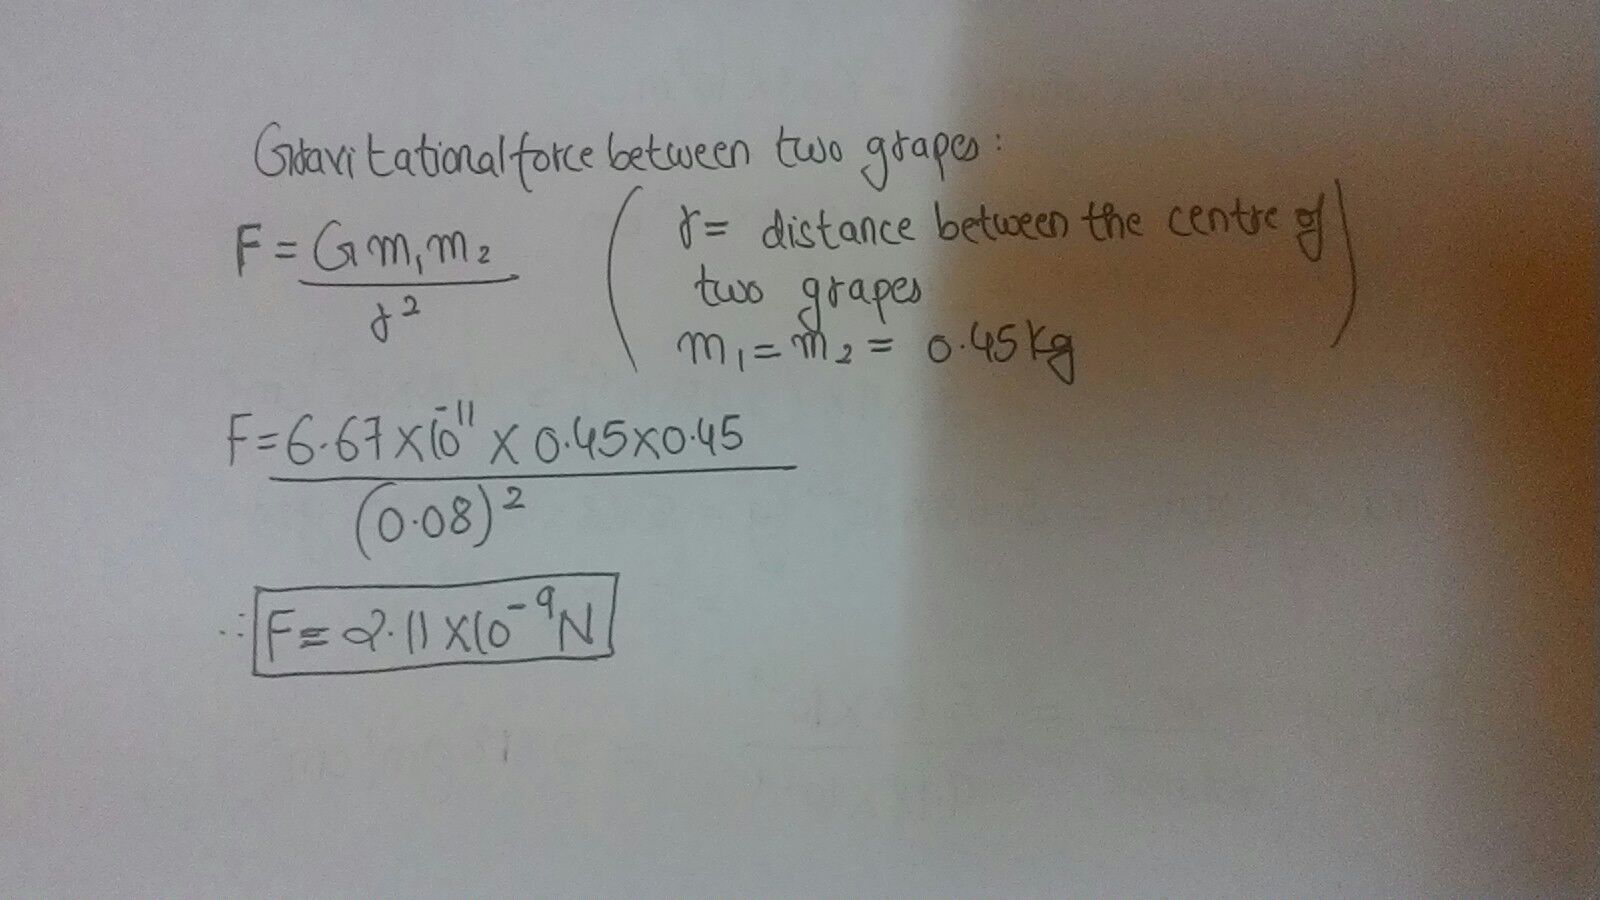 Gravitational force between two grapes:
F = Gm₁m₂ / r²
( r = distance between the centre of two grapes
m₁ = m₂ = 0.45 kg )
F = 6.67 × 10⁻¹¹ × 0.45 × 0.45 / (0.08)²
∴ F = 2.11 × 10⁻⁹ N